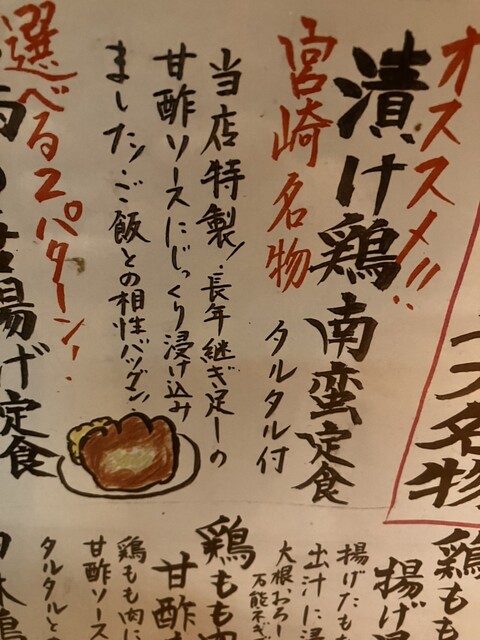 オススメ!!
漬け鶏南蛮定食
宮崎名物
タルタル付
当店特製!長年継ぎ足しの
甘酢ソースにじっくり浸け込み
ました!ご飯との相性バツグン!
選べる2パターン!
揚げ定食
名物
鶏もも
揚げ
揚げたも
出汁に浸
大根おろし
万能ネギ
鶏もも肉
甘酢
鶏もも肉に
甘酢ソース
タルタルと